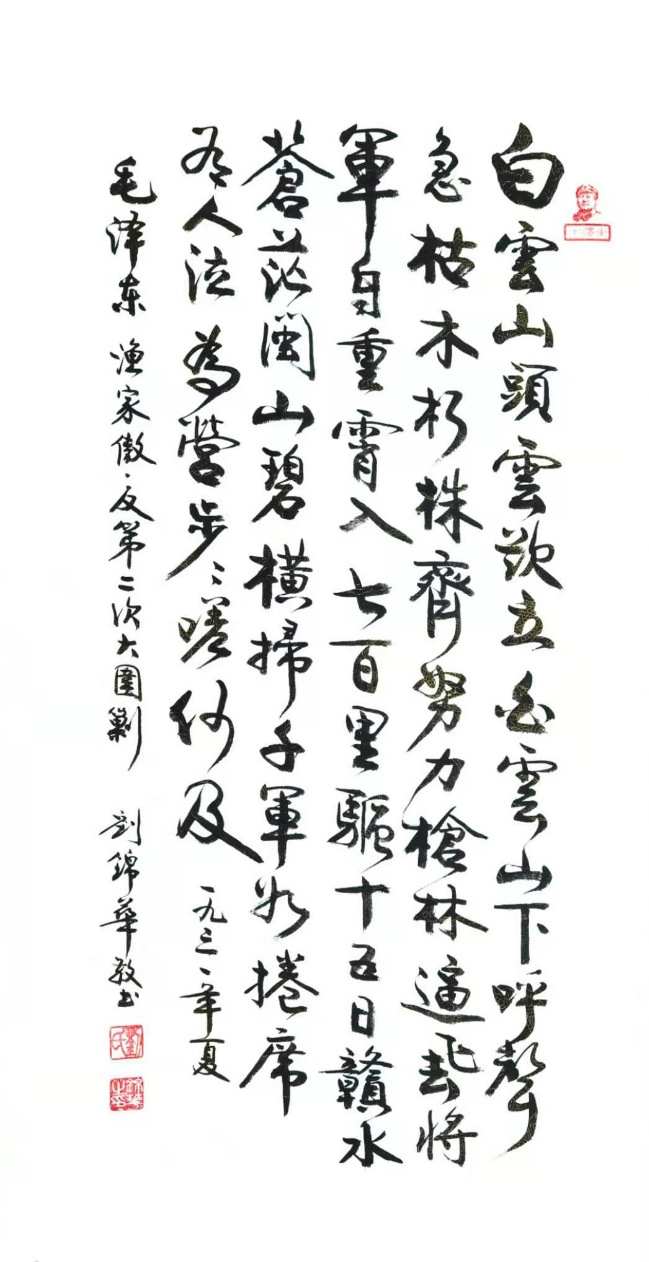 白雲山頭雲欲立白雲山下呼聲
急枯木朽株齊努力槍林逼飛將
軍自重霄入七百里驅十五日贛水
蒼茫閩山碧橫掃千軍如捲席
有人泣為營步〻嗟何及 一九三一年夏
毛泽东 渔家傲·反第二次大圍剿 劉錦華敬书
劉氏
錦華之印